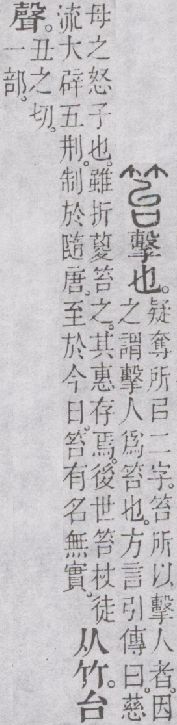 笞擊也。
疑奪所㠯二字。笞所以擊人者。因
之謂擊人爲笞也。方言引傳曰。慈
母之怒子也。雖折葼笞之。其惠存焉。後世笞杖徒
流大辟五刑。制於隨唐。至於今日。笞有名無實。
从竹。台
聲。
丑之切。
一部。